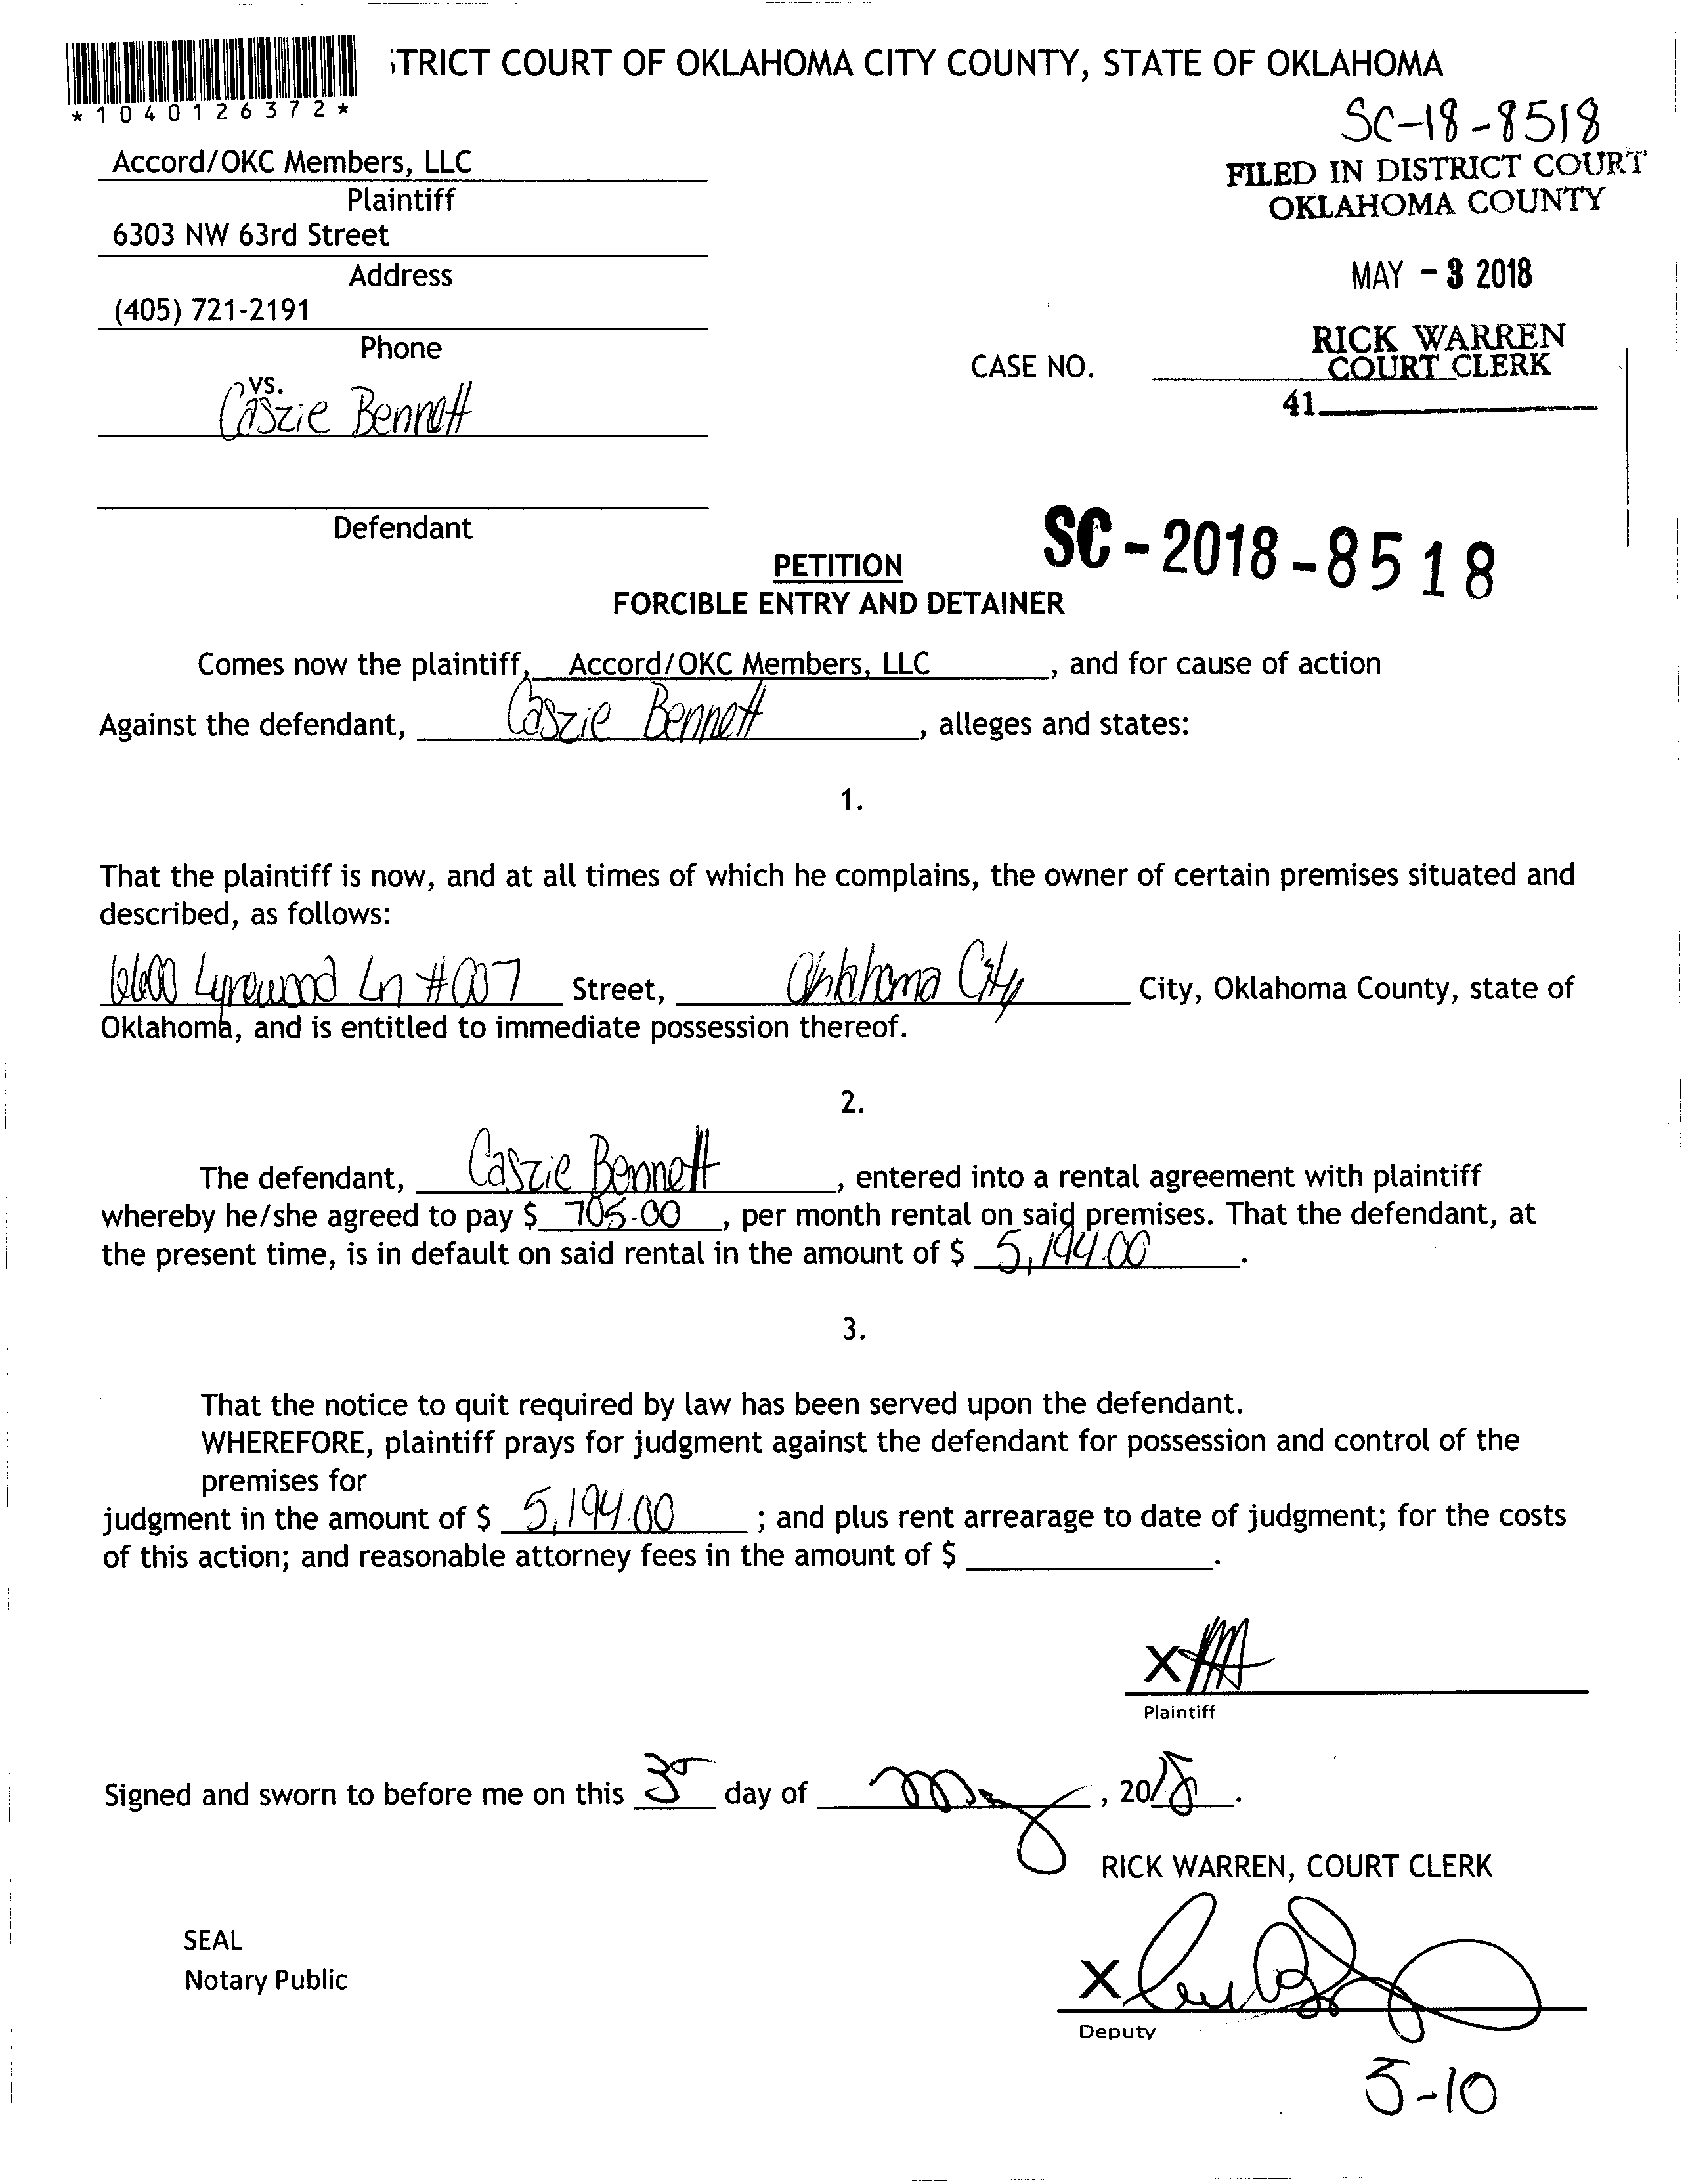 TRICT COURT OF OKLAHOMA CITY COUNTY, STATE OF OKLAHOMA
*1040126372*
SC-18-8518
FILED IN DISTRICT COURT
OKLAHOMA COUNTY
MAY - 3 2018
RICK WARREN
COURT CLERK
41
Accord/OKC Members, LLC
Plaintiff
6303 NW 63rd Street
Address
(405) 721-2191
Phone
vs.
Caszie Bennett
CASE NO.
Defendant
SC-2018-8518
PETITION
FORCIBLE ENTRY AND DETAINER
Comes now the plaintiff, Accord/OKC Members, LLC, and for cause of action
Against the defendant, Caszie Bennett, alleges and states:
1.
That the plaintiff is now, and at all times of which he complains, the owner of certain premises situated and
described, as follows:
6600 Lyrewood Ln #007 Street, Oklahoma City City, Oklahoma County, state of
Oklahoma, and is entitled to immediate possession thereof.
2.
The defendant, Caszie Bennett, entered into a rental agreement with plaintiff
whereby he/she agreed to pay $ 705.00, per month rental on said premises. That the defendant, at
the present time, is in default on said rental in the amount of $ 5,194.00.
3.
That the notice to quit required by law has been served upon the defendant.
WHEREFORE, plaintiff prays for judgment against the defendant for possession and control of the
premises for
judgment in the amount of $ 5,194.00 ; and plus rent arrearage to date of judgment; for the costs
of this action; and reasonable attorney fees in the amount of $ .
X
Plaintiff
Signed and sworn to before me on this 3 day of May, 2018.
RICK WARREN, COURT CLERK
SEAL
Notary Public
X
Deputy
5-10